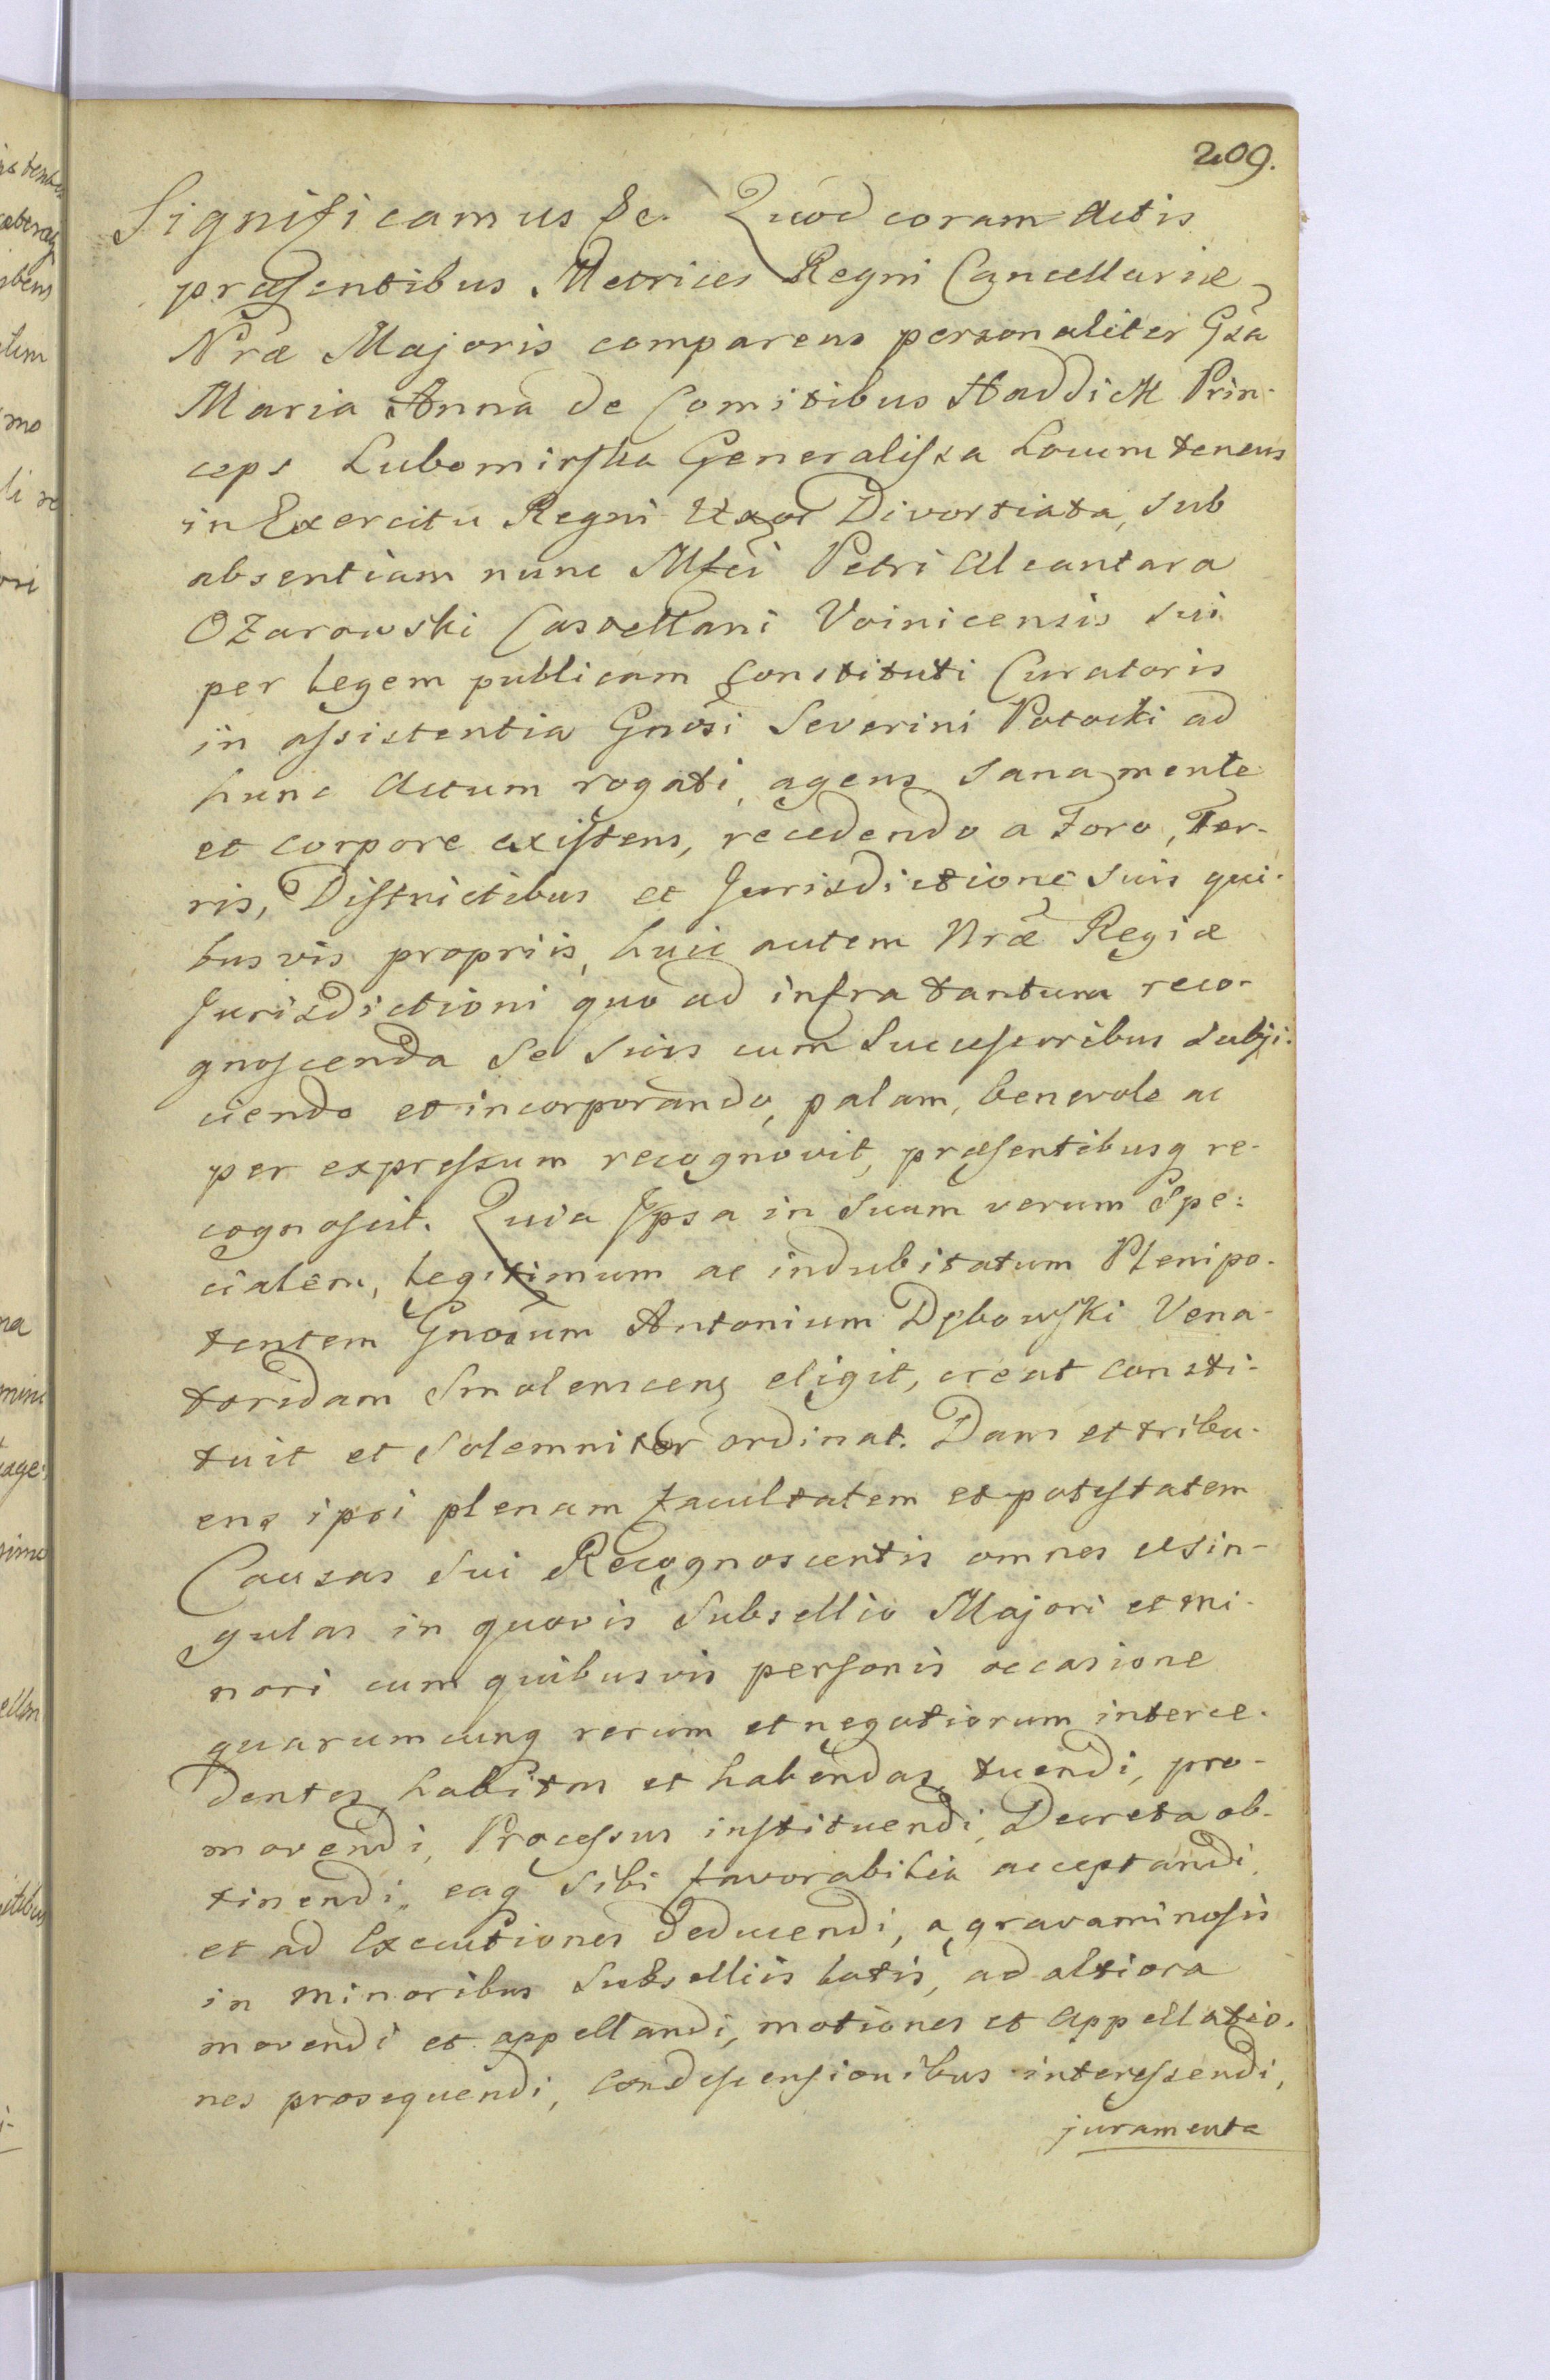 209.
Significamus &c. Quod coram Actis
præsentibus Metrices Regni Cancellariæ
Nræ Majoris comparens personaliter Gsa
Maria Anna de Comitibus Haddick Prin-
ceps Lubomirska Generalissa Locum tenens
in Exercitu Regni Uxor Divortiata, sub
absentiam nunc Mfci Petri Alcantara
Ożarowski Castellani Voinicensis sui
per Legem publicam constituti Curatoris
in assistentia Gnosi Severini Potocki ad
hunc Actum rogati, agens sana mente
et corpore existens, recedendo a Foro, Ter-
ris, Districtibus et Jurisdictione suis qui-
busvis propriis, huic autem Nræ Regiæ
Jurisdictioni quo ad infra tantum reco-
gnoscenda se suis cum Successoribus subji-
ciendo et incorporando, palam, benevole ac
per expressum recognovit, præsentibusq re-
cognoscit. Quia Ipsa in suum verum Spe-
cialem, Legitimum ac indubitatum Plenipo-
tentem Gnosum Antonium Dębowski Vena-
toridam Smolenscens eligit, creat consti-
tuit et solemniter ordinat. Dans et tribu-
ens ipsi plenam facultatem et potestatem
Causas sui Recognoscentis omnes et sin-
gulas in quovis Subsellio Majori et mi-
nori cum quibusvis personis occasione
quarumcunq rerum et negotiorum interce-
dentes, habitas et habendas, tuendi, pro-
movendi, Processus instituendi, Decreta ob-
tinendi, eaq sibi favorabilia acceptandi,
et ad Executiones deducendi, a gravaminosis
in minoribus Subselliis latis, ad altiora
movendi et appellandi, motiones et Appellatio-
nes prosequendi, Condescensionibus interessendi,
juramenta